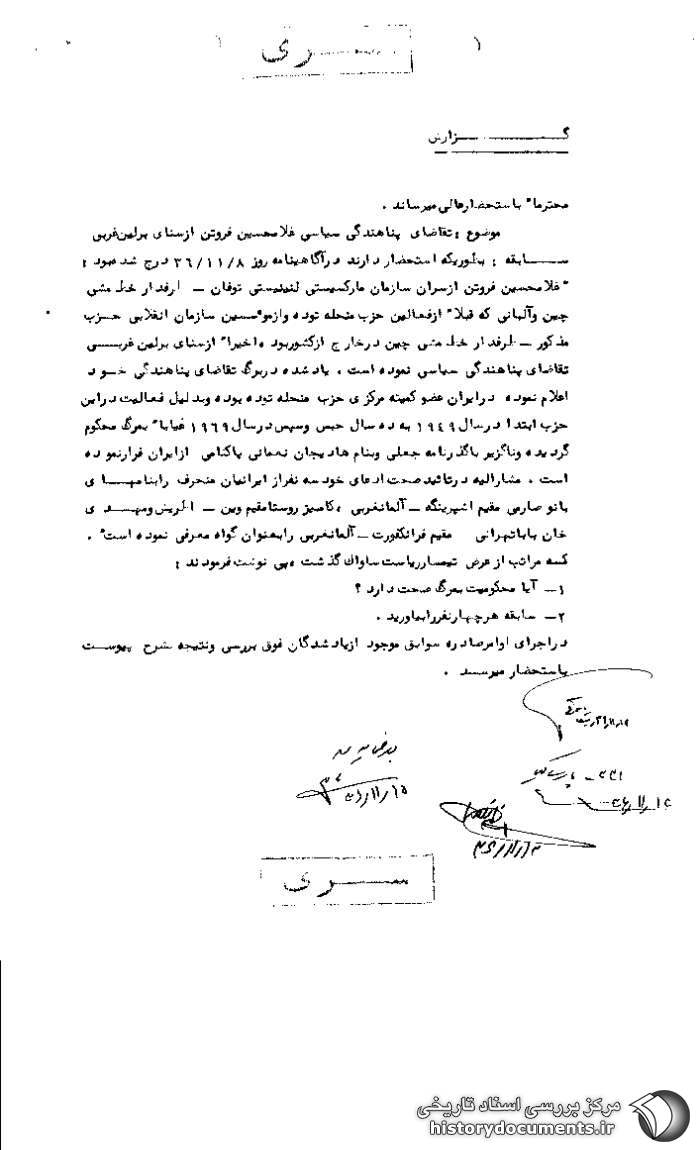 سری
گزارش
محترما" باستحضارعالی میرساند .
موضوع : تقاضای پناهندگی سیاسی غلامحسین فروتن ازسنای برلین غربی
سابقه : بطوریکه استحضار دارند درآگاهینامه روز ۳۶/۱۱/۸ درج شده بود :
"غلامحسین فروتن ازسران سازمان مارکسیستی لنینیستی توفان – طرفدار خط مشی
چین وآلبانی که قبلا" ازفعالین حزب منحله توده وازموسسین سازمان انقلابی حزب
مذکور – طرفدار خط مشی چین درخارج ازکشوربود ،اخیرا" ازسنای برلین غربی
تقاضای پناهندگی سیاسی نموده است . یاد شده دربرگ تقاضای پناهندگی خود
اعلام نموده درایران عضو کمیته مرکزی حزب منحله توده بوده وبدلیل فعالیت دراین
حزب ابتدا درسال ۱۹۴۹ به ده سال حبس وسپس درسال ۱۹۶۹ غیابا" بمرگ محکوم
گردیده وناگزیر باگذرنامه جعلی وبنام هادیجان نعمانی پاکنامی ازایران فرارنموده
است . مشارالیه درتائید صحت ادعای خود سه نفراز ایرانیان منحرف رابنامهای
بانو صارمی مقیم اشپرینگه – آلمانغربی ،کامبیز روستامقیم وین – اطریش ومهدی
خان باباتهرانی مقیم فرانکفورت – آلمانغربی رابعنوان گواه معرفی نموده است" .
که مراتب از عرض تیمسارریاست ساواک گذشت ،پی نوشت فرمودند :
۱– آیا محکومیت بمرگ صحت دارد ؟
۲– سابقه هرچهارنفررابیاورید .
دراجرای اوامرصادره سوابق موجود ازیادشدگان فوق بررسی ونتیجه بشرح پیوست
باستحضار میرسد .
سری
مرکز بررسی اسناد تاریخی
historydocuments.ir